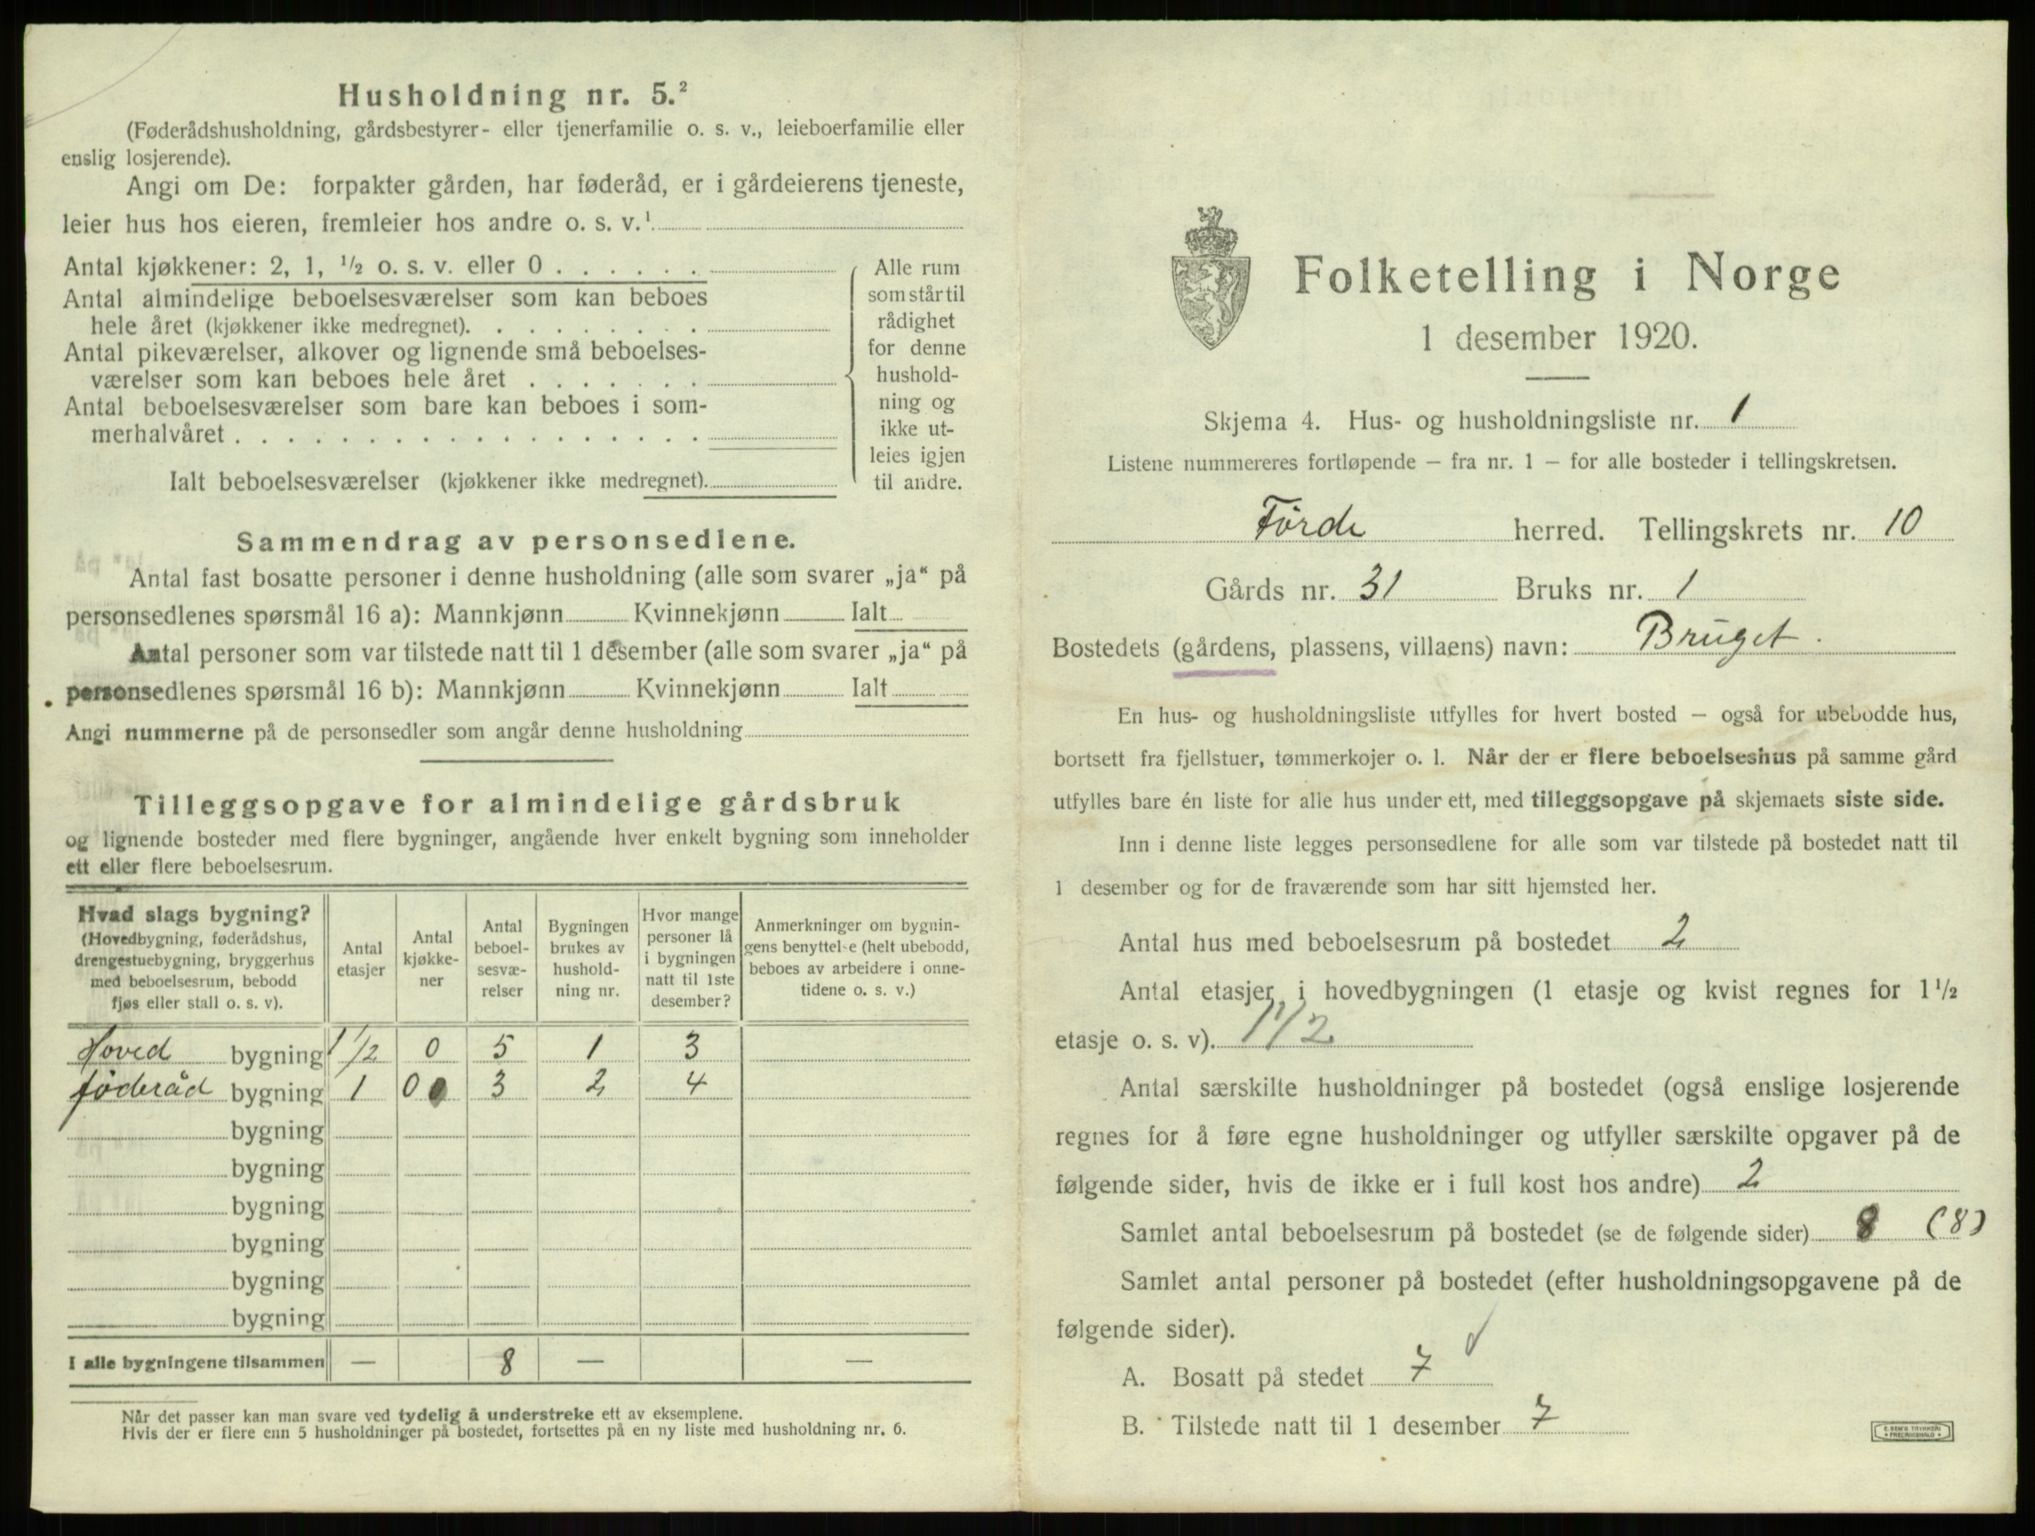 Husholdning nr. 5.²
(Føderådshusholdning, gårdsbestyrer- eller tjenerfamilie o. s. v., leieboerfamilie eller
enslig losjerende).
Angi om De: forpakter gården, har føderåd, er i gårdeierens tjeneste,
leier hus hos eieren, fremleier hos andre o. s. v.¹
Antal kjøkkener: 2, 1, ½ o. s. v. eller 0 . . . . . .
Antal almindelige beboelsesværelser som kan beboes
hele året (kjøkkener ikke medregnet). . . . . . . . .
Antal pikeværelser, alkover og lignende små beboelses-
værelser som kan beboes hele året . . . . . . .
Antal beboelsesværelser som bare kan beboes i som-
merhalvåret . . . . . . . . . . . . . . . . . .
Ialt beboelsesværelser (kjøkkener ikke medregnet).
Alle rum
som står til
rådighet
for denne
hushold-
ning og
ikke ut-
leies igjen
til andre.
Sammendrag av personsedlene.
Antal fast bosatte personer i denne husholdning (alle som svarer „ja“ på
personsedlenes spørsmål 16 a): Mannkjønn Kvinnekjønn Ialt
Antal personer som var tilstede natt til 1 desember (alle som svarer „ja“ på
personsedlenes spørsmål 16 b): Mannkjønn Kvinnekjønn Ialt
Angi nummerne på de personsedler som angår denne husholdning
Tilleggsopgave for almindelige gårdsbruk
og lignende bosteder med flere bygninger, angående hver enkelt bygning som inneholder
ett eller flere beboelsesrum.
Hvad slags bygning?
(Hovedbygning, føderådshus,
drengestuebygning, bryggerhus
med beboelsesrum, bebodd
fjøs eller stall o. s. v).
Antal
etasjer
Antal
kjøkke-
ner
Antal
beboel-
sesvæ-
relser
Bygningen
brukes av
hushold-
ning nr.
Hvor mange
personer lå
i bygningen
natt til 1ste
desember?
Anmerkninger om bygnin-
gens benyttelse (helt ubebodd,
beboes av arbeidere i onne-
tidene o. s. v.)
Hoved bygning 1 1/2 0 5 1 3
føderåd bygning 1 0 3 2 4
bygning
bygning
bygning
bygning
bygning
bygning
I alle bygningene tilsammen — 8 — —
Når det passer kan man svare ved tydelig å understreke ett av eksemplene.
Hvis der er flere enn 5 husholdninger på bostedet, fortsettes på en ny liste med husholdning nr. 6.
Folketelling i Norge
1 desember 1920.
Skjema 4. Hus- og husholdningsliste nr. 1
Listene nummereres fortløpende – fra nr. 1 – for alle bosteder i tellingskretsen.
Förde herred. Tellingskrets nr. 10
Gårds nr. 31 Bruks nr. 1
Bostedets (gårdens, plassens, villaens) navn: Bruget.
En hus- og husholdningsliste utfylles for hvert bosted – også for ubebodde hus,
bortsett fra fjellstuer, tømmerkojer o. l. Når der er flere beboelseshus på samme gård
utfylles bare én liste for alle hus under ett, med tilleggsopgave på skjemaets siste side.
Inn i denne liste legges personsedlene for alle som var tilstede på bostedet natt til
1 desember og for de fraværende som har sitt hjemsted her.
Antal hus med beboelsesrum på bostedet 2
Antal etasjer i hovedbygningen (1 etasje og kvist regnes for 1½
etasje o. s. v). 1 1/2
Antal særskilte husholdninger på bostedet (også enslige losjerende
regnes for å føre egne husholdninger og utfyller særskilte opgaver på de
følgende sider, hvis de ikke er i full kost hos andre) 2
Samlet antal beboelsesrum på bostedet (se de følgende sider) 8 (8)
Samlet antal personer på bostedet (efter husholdningsopgavene på de
følgende sider).
A. Bosatt på stedet 7
B. Tilstede natt til 1 desember 7